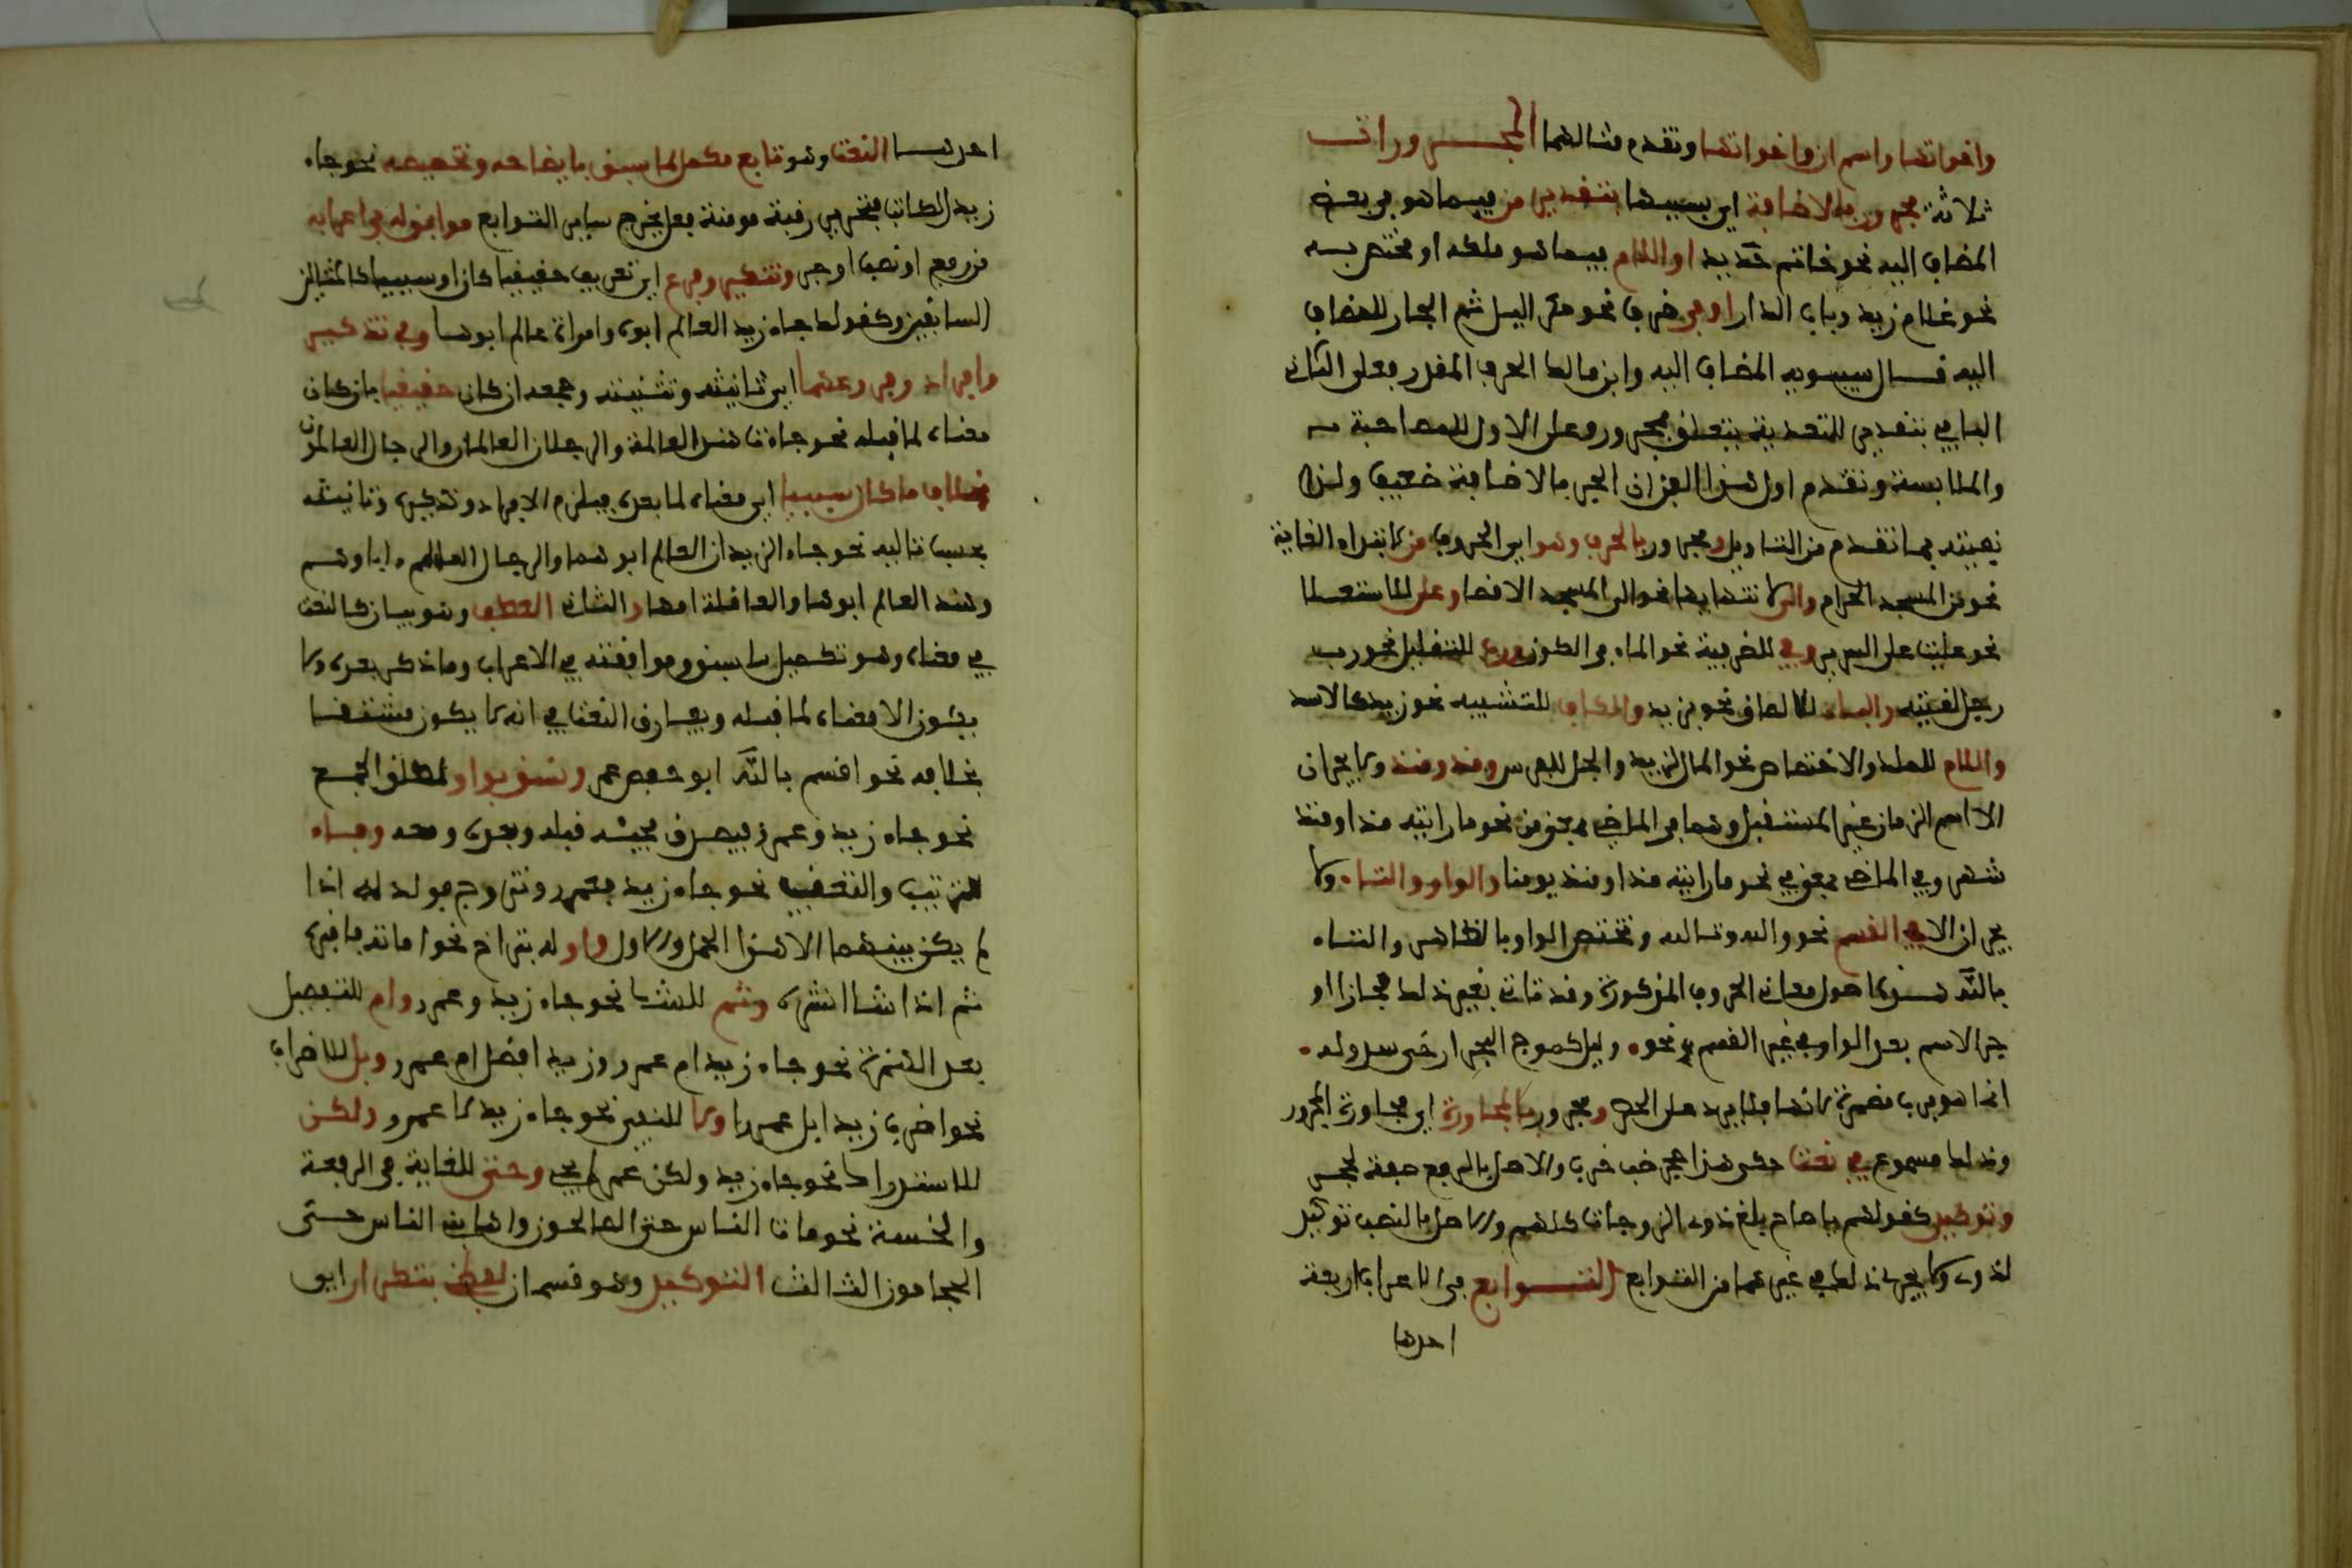 واخواتها واسم ان واخواتها وتقدم مثالهما المجرورات
ثلاثة مجرور بالاضافة اي بسببها بتقدير من فيما هو بعض
المضاف اليه نحو خاتم حديد او اللام فيما هو ملكه او مختص به
نحو غلام زيد وباب الدار او في ظرف نحو مكر اليل ثم الجار للمضاف
اليه قال سيبويه المضاف اليه وابن مالك الحرف المقدر فعلى الثاني
الباء في بتقدير للتعدية تتعلق بمجرور وعلى الاول للمصاحبة
والملابسة وتقدم اول هذا الفن ان الجر بالاضافة ضعيف
بما تقدم من التاويل ومجرور بالحرف وهو اي الحروف من لابتداء الغاية
نحو من المسجد الحرام والى لانتهايها نحو الى المسجد الاقصا وعلى للاستعلا
نحو علينا على السرير وفي للظرفية نحو الماء في الكوز ورب للتقليل نحو رب
رجل لقيته والباء للالصاق نحو بزيد والكاف للتشبيه نحو زيد كالاسد
واللام للملك والاختصاص نحو المال لزيد والجل للفرس ومذ ومنذ ولا يجران
الا اسم الزمان غير المستقبل وهما في الماضي بمعنى من نحو ما رايته مذ او منذ
شهر وفي الماضي بمعنى في نحو ما رايته مذ او منذ يومنا والواو والتاء ولا
يجران الا في القسم نحو والله وتالله وتختص الواو بالظاهر والتاء
بالله هذه اصول معاني الحروف المذكورة وقد تاتي بغير ذلك مجازا او
جر الاسم بعد الواو في غير القسم نحو وليل كموج البحر ارخى سدوله
انما هو برب مضمرة لانها فلا يرد على الحصر ومجرور بالمجاورة اي مجاورة المجرور
وذلك مسموع في نعت حكي هذا جحر ضب خرب والاصل بالرفع صفة لجحر
وتوكيد كقولهم يا صاح بلغ ذوي الزوجات كلهم والاصل بالنصب توكيد
لذوي ولا يجري ذلك في غيرهما من التوابع التوابع في الاعراب اربعة
احدها
احدها النعت وهو تابع مكمل لما سبق بايضاحه وتخصيصه نحو جاء
زيد الكاتب فتحرير رقبة مومنة فعل يخرج ساير التوابع موافق له في اعرابه
من رفع او نصب او جر وتنكير وفرع اي تعريف حقيقيا كان او سببيا كالمثالين
السابقين وكقولك جاء زيد العالم ابوه وامراة عالم ابوها وفي تذكير
وافراد وفرعهما اي تانيثه وتثنيته وجمعه ان كان حقيقيا بان كان
معناه لما قبله نحو جاءت هند العالمة والرجلان العالمان والرجال العالمون
بخلاف ما كان سببيا اي معناه لما بعده فيلزم الافراد وتذكيره وتانيثه
بحسب تاليه نحو جاء الزيدان العالم ابوهما والرجال العالم اباوهم
وهند العالم ابوها والعاقلة امها والثاني العطف وهو بيان كالنعت
في معناه وهو تكميل ما سبق وموافقته في الاعراب وما ذكر بعده ولا
يكون الا معناه لما قبله ويفارق النعت في انه لا يكون مشتقا
بخلافه نحو اقسم بالله ابو حفص عمر ونسق بواو لمطلق الجمع
نحو جاء زيد وعمرو فيصدق بمجيئه قبله وبعده ومعه وفاء
للترتيب والتعقيب نحو جاء زيد فعمرو وتزوج فولد له اذا
لم يكن بينهما الا هذا الحمل والاول واوله بتراخ نحو اماته فاقبره
ثم اذا شا انشره وثم نحو جاء زيد وعمرو وام للتفصيل
بعد الهمزة نحو جاء زيد ام عمرو وزيد افضل ام عمرو وبل للاضراب
نحو اضرب زيدا بل عمرا ولا للنفي نحو جاء زيد لا عمرو ولكن
للاستدراك نحو جاء زيد ولكن عمر لم يجي وحتى للغاية في الرفعة
والخسة نحو مات الناس حتى الصالحون واهانت الناس حتى
الحجامون الثالث التوكيد وهو قسمان لفظي بتكرار